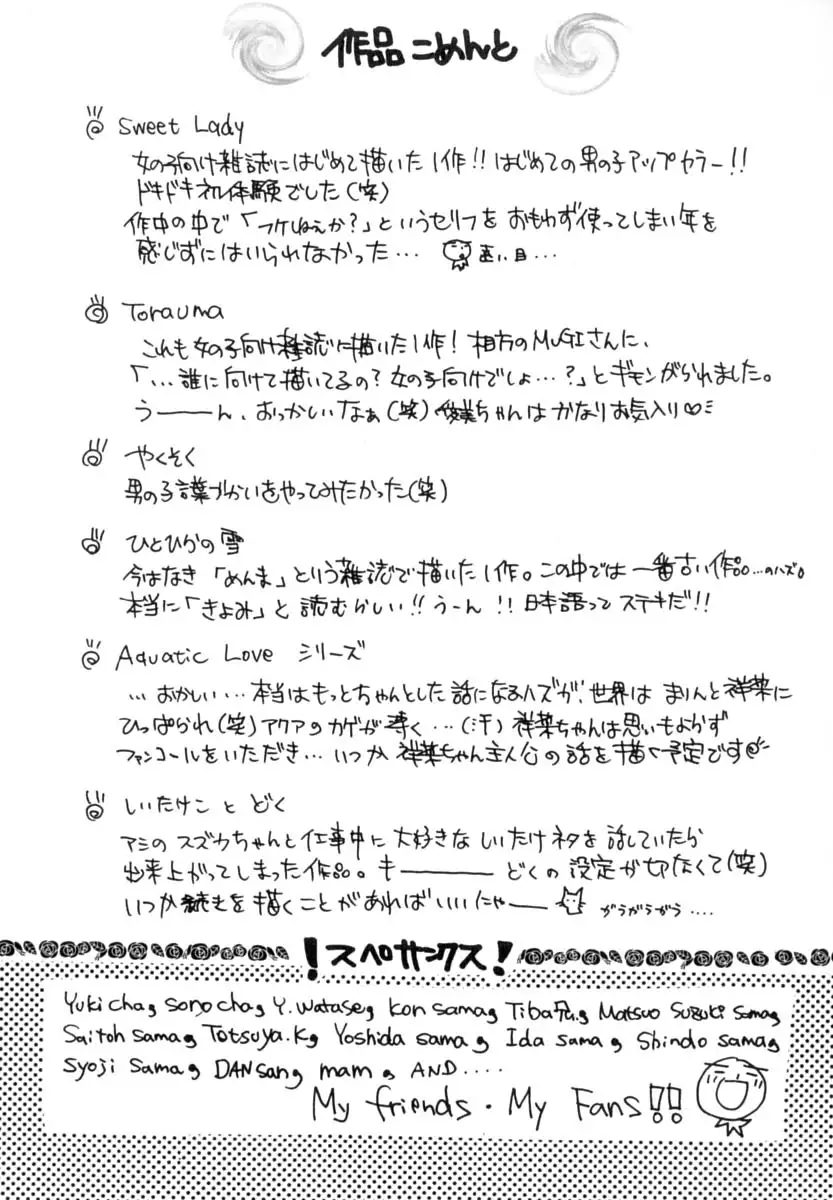 作品こめんと
Sweet Lady
女の子向け雑誌にはじめて描いた1作!! はじめての男の子アップカラー!!
ドキドキ初体験でした(笑)
作中の中で「フケねぇか?」というセリフをおもわず使ってしまい年を
感じずにはいられなかった… 遠い目…
Torauma
これも女の子向け雑誌に描いた1作! 相方のMUGIさんに、
「…誰に向けて描いてるの?女の子向けでしょ…?」とギモンがられました。
うーーん、おっかしいなぁ(笑) ちゃんはかなりお気入り♡
やくそく
男の子言葉づかいをやってみたかった(笑)
ひとひらの雪
今はなき「めんま」という雑誌で描いた1作。この中では一番古い作品…のハズ。
本当に「きよみ」と読むらしい!! うーん!! 日本語ってステキだ!!
Aquatic Love シリーズ
…おかしい…本当はもっとちゃんとした話になるハズが、世界はまりんと祥菜に
ひっぱられ(笑)アクアのカゲが薄く…(汗)祥菜ちゃんは思いもよらず
ファンコールをいただき…いつか祥菜ちゃん主人公の話を描く予定です
しいたけこ と どく
アシのスズカちゃんと仕事中に大好きなしいたけネタを話していたら
出来上がってしまった作品。キーーー どくの設定が切なくて(笑)
いつか続きを描くことがあればいいにゃー がうがうがう….
!スペサンクス!
Yuki cha, sono cha, Y. Watase, Kon sama, Tiba, Matsuo Suzuki sama,
Saitoh sama, Totsuya.K, Yoshida sama, Ida sama, Shindo sama,
Syoji sama, DAN san, mam, AND.....
My friends・My Fans!!